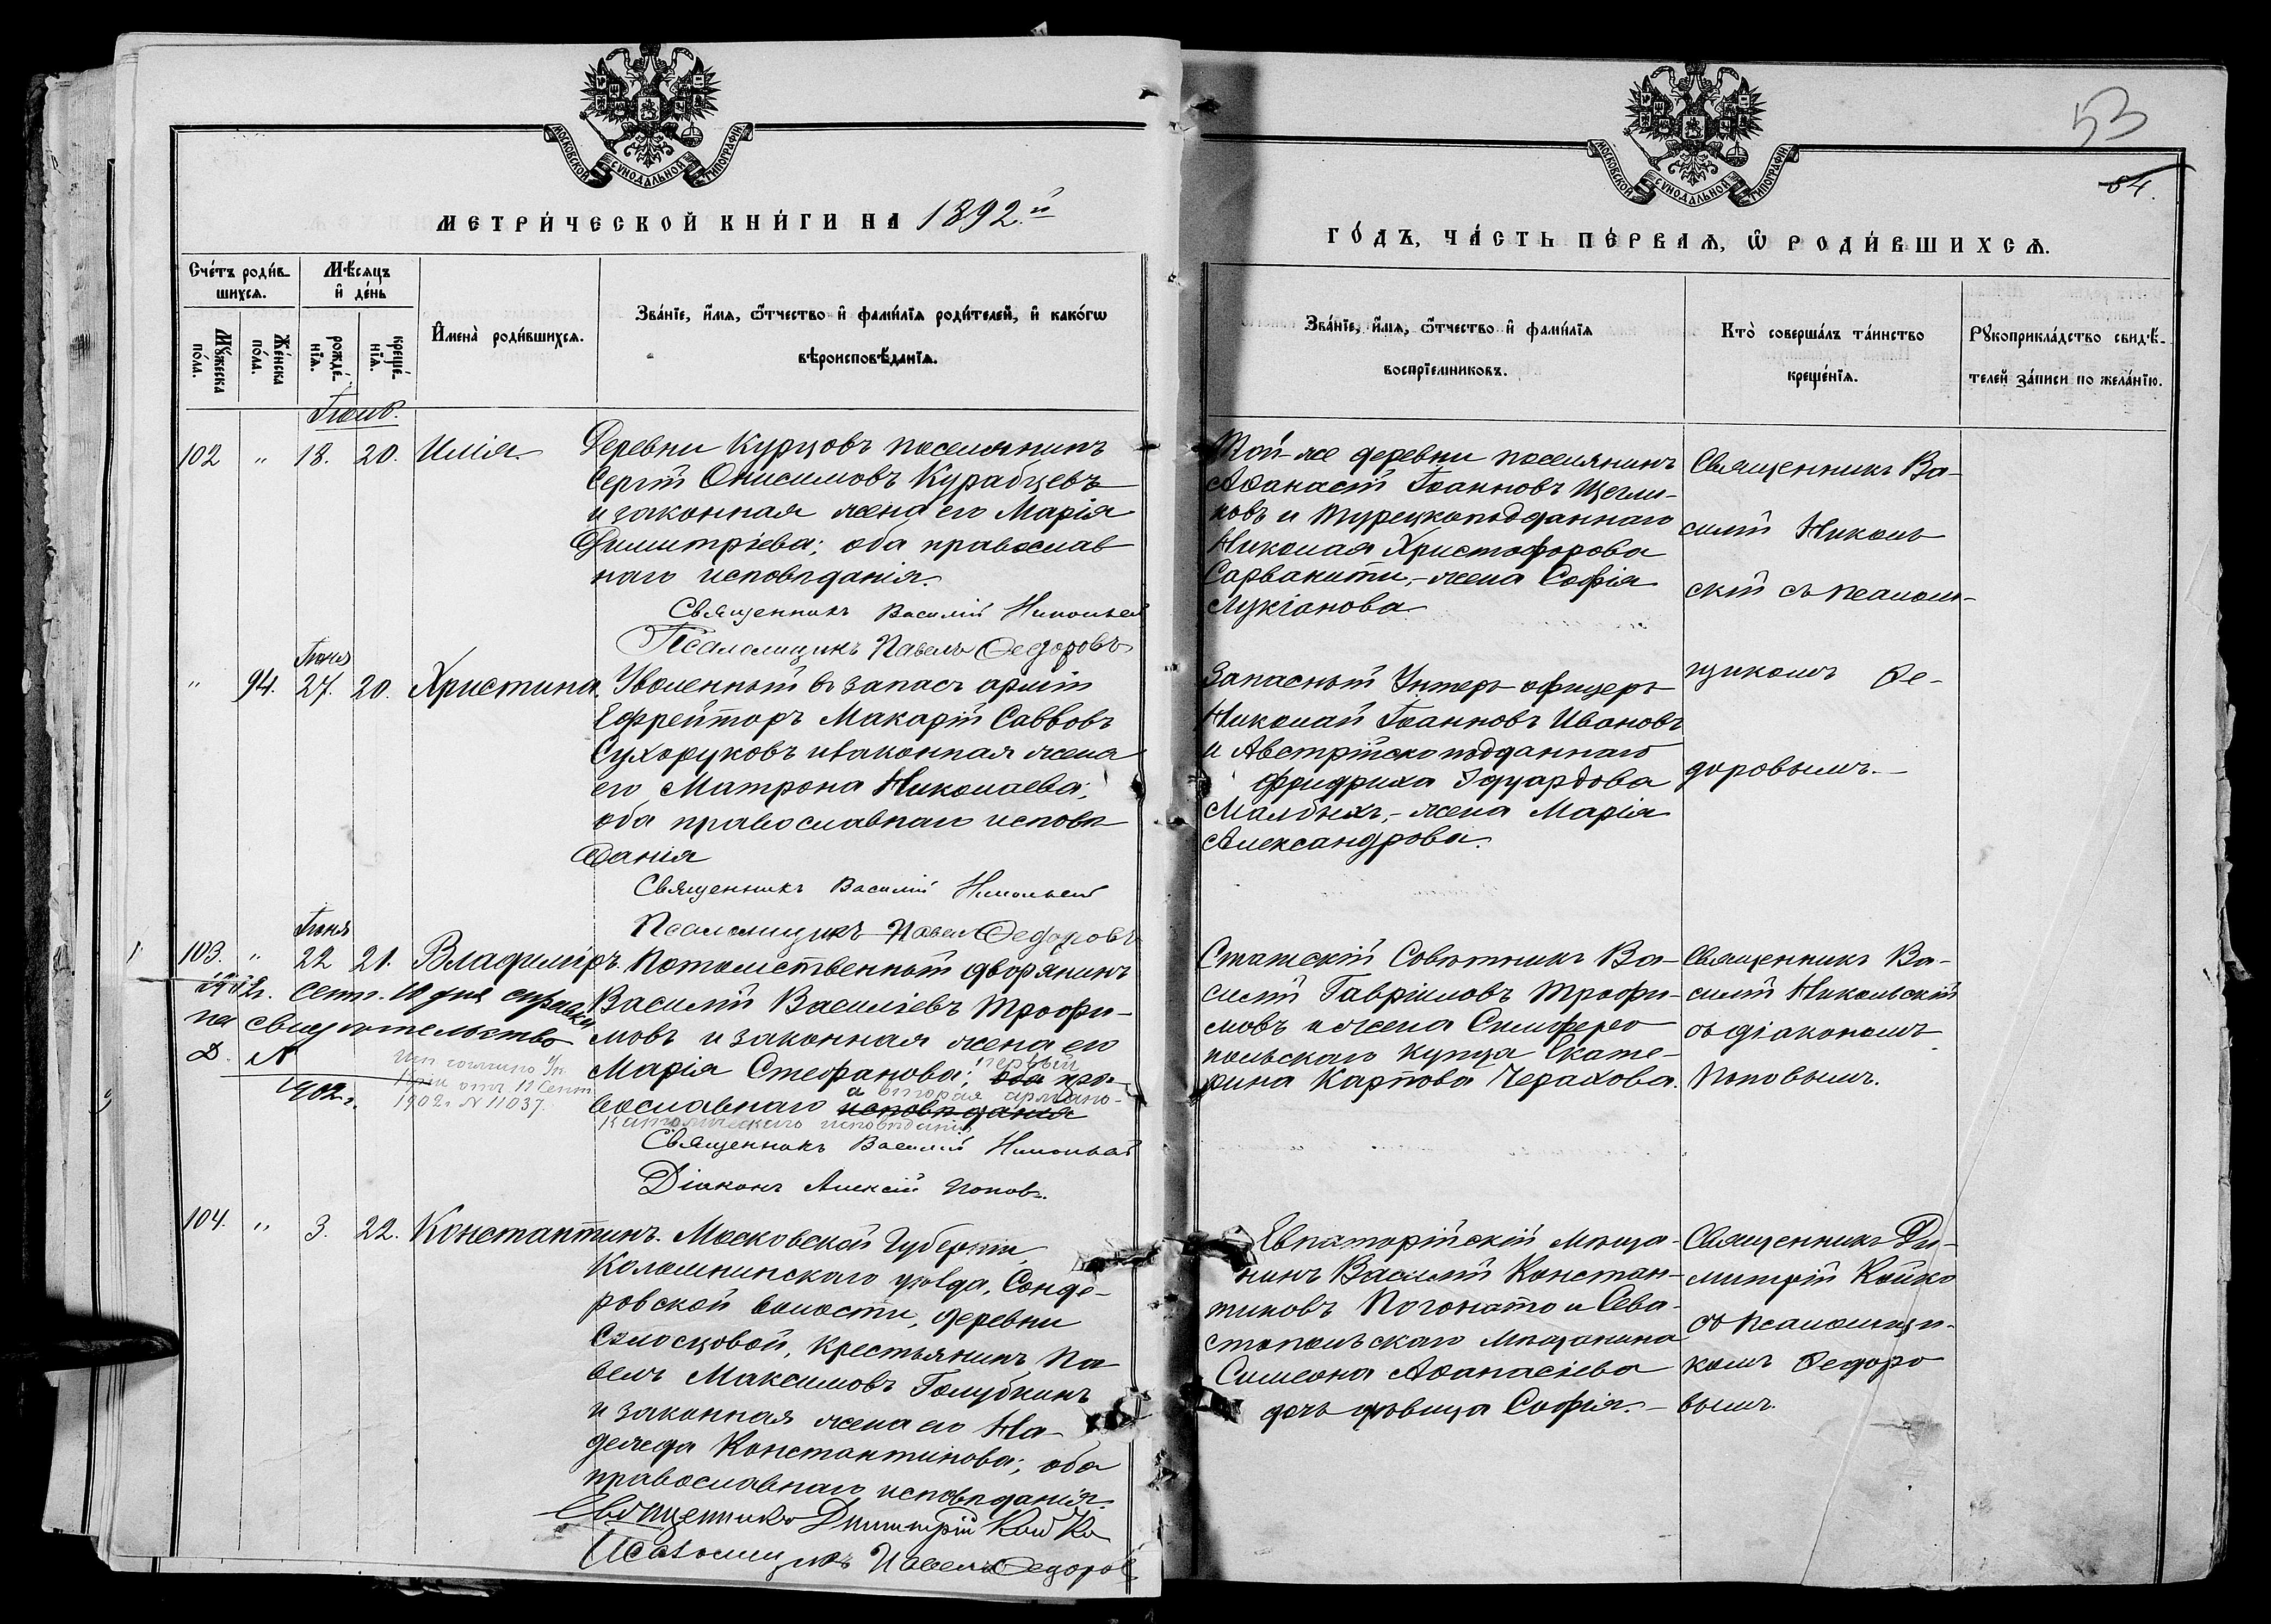 МОСКОВСКОЙ СѴНОДАЛЬНОЙ ТИПОГРАФІИ
МЕТРИ́ЧЕСКОЙ КНИ́ГИ НА 1892.й
Сче́тъ роди́в-
шихсѧ.
Мѣ́сѧцъ
и҆ де́нь
Мꙋ́жеска
по́ла.
Же́нска
по́ла.
рожде́-
нїѧ.
креще́-
нїѧ.
И҆мена̀ роди́вшихсѧ.
Зва́нїе, и҆́мѧ, ѻ҆́тчество и҆ фами́лїѧ роди́телей, и҆ како́гѡ
вѣроисповѣ́данїѧ.
102 " 18. 20. Илія.
Деревни Курцовъ поселянинъ
Сергій Онисимовъ Курабцевъ
и законная жена его Марія
Димитріева; оба православ
наго исповѣданія.
Священникъ Василій Никольскій
Псаломщикъ Павелъ Федоровъ
Іюня
" 94. 27. 20. Христина.
Уволенный въ запасъ арміи
Ефрейторъ Макарій Саввовъ
Сухоруковъ и законная жена
его Матрона Николаева;
оба православнаго исповѣ
данія
Священникъ Василій Никольскій
Псаломщикъ Павелъ Федоровъ
Іюня
103. " 22 21. Владиміръ.
Потомственный дворянинъ
Василій Василіевъ Трофи-
мовъ и законная жена его
Марія Стефанова; первый
оба пра-
вославнаго а вторая армяно-
исповѣданія
католическаго исповѣданія
Сент. 10 дня справка
на свидѣтельство
Д. №
1902 г.
отъ 11 Сент.
1902 г. № 11037.
Священникъ Василій Никольскій
Діаконъ Алексій Поповъ.
104. " 3. 22. Константинъ.
Московской Губерніи,
Коломнинскаго уѣзда, Сандо-
ровской волости, деревни
крестьянинъ Па
велъ Максимовъ Голубкинъ
и законная жена его На-
дежда Константинова; оба
православнаго исповѣданія.
Священникъ Димитрій Койко
Псаломщикъ Павелъ Федоровъ
53
54.
МОСКОВСКОЙ СѴНОДАЛЬНОЙ ТИПОГРАФІИ
ГО́ДЪ, ЧА́СТЬ ПЕ́РВАѦ, Ѡ҆ РОДИ́ВШИХСѦ.
Зва́нїе, и҆́мѧ, ѻ҆́тчество и҆ фами́лїѧ
воспрїе́мниковъ.
Кто̀ соверша́лъ та́инство
креще́нїѧ.
Рꙋкоприкла́дство свидѣ́-
телей за́писи по жела́нїю.
Той-же деревни поселянинъ
Аѳанасій Іоанновъ Щегли-
ковъ и Турецкоподданнаго
Николая Христофорова
Сарвакити,- жена Софія
Лукіанова
Священникъ Ва-
силій Николь
скій съ псалом-
щикомъ Ѳе-
доровымъ.-
Запасный Унтеръ-офицеръ
Николай Іоанновъ Ивановъ
и Австрійскоподданнаго
Фридриха Эдуардова
Малбихъ,- жена Марія
Александрова.
Статскій Совѣтникъ Ва-
силій Гавріиловъ Трофи-
мовъ и жена Симферо
польскаго купца Екате-
рина Карпова Черахова.
Священникъ Ва-
силій Никольскій
съ діакономъ
Поповымъ.
Евпаторійскій мѣща-
нинъ Василій Констан-
тиновъ Погонато и Сева-
стопольскаго мѣщанина
Симеона Аѳанасіева
дочь дѣвица Софія.-
Священникъ Ди-
митрій Койко
съ псаломщи-
комъ Ѳедоро
вымъ.